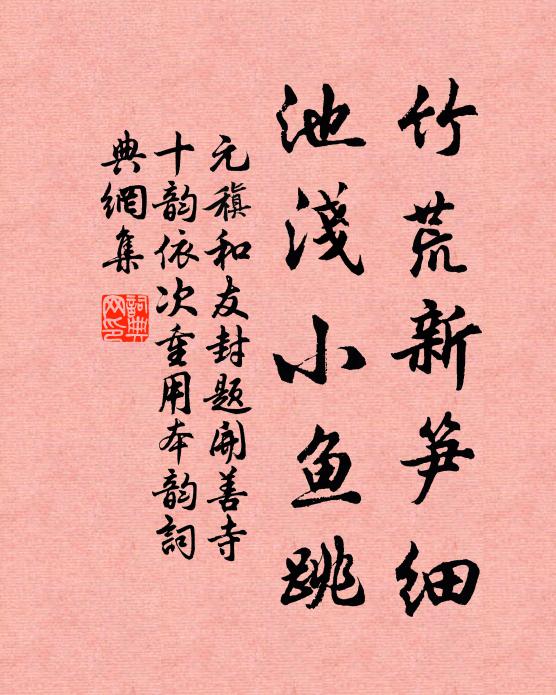 竹荒新笋细
池浅小鱼跳
元稹和友封题开善寺
十韵依次重用本韵词
典網集
詞典网印